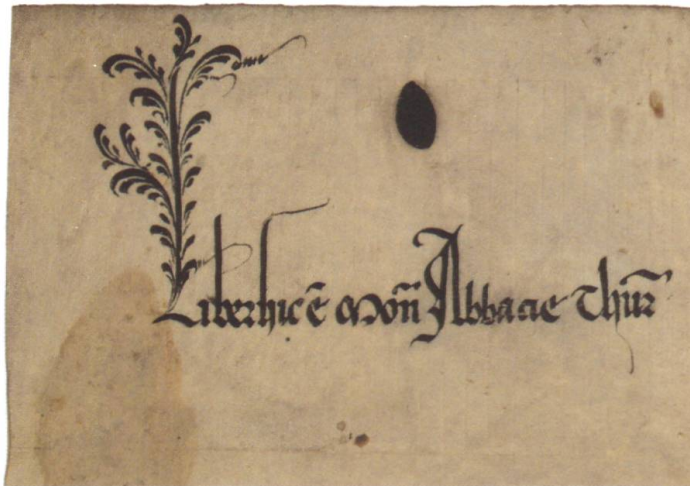 Liber hic ē Mon̄ Abbacie Thur̄